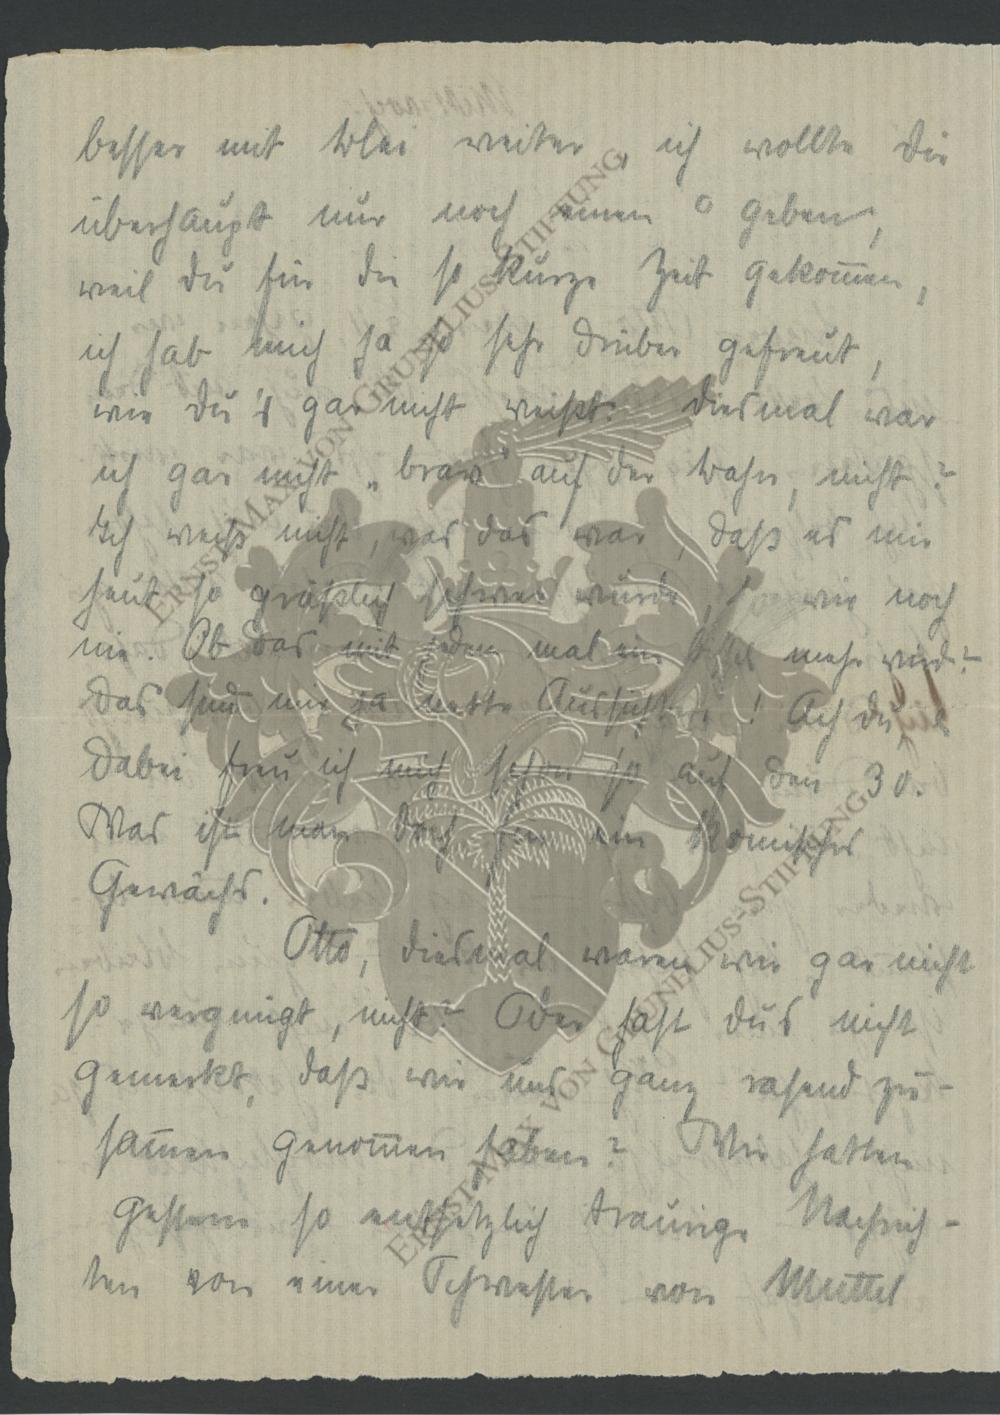 besser mit Blei weiter, ich wollte dir
überhaupt nur noch einen o geben,
weil du für die so kurze Zeit gekom̄en,
ich hab mich ja so sehr drüber gefreut,
wie du's gar nicht weißt. Diesmal war
ich gar nicht „brav" auf der Bahn, nicht?
Ich weiß nicht, was das war, daß es mir
heut so gräßlich schwer wurde, wie noch
nie. Ob das mit jedem mal ein bissel mehr wird?
Das sind mir ja nette Aussichten! Ach du,
dabei freu ich mich schon so auf den 30.
Was ist man doch für ein komisches
Gewächs.
Otto, diesmal waren wir gar nicht
so vergnügt, nicht? Oder hast dus nicht
gemerkt, daß wir uns ganz rasend zu-
sam̄en genom̄en haben? Wir hatten
gestern so entsetzlich traurige Nachrich-
ten von einer Schwester von Muttel
ERNST MAX VON GRUNELIUS-STIFTUNG
ERNST MAX VON GRUNELIUS-STIFTUNG